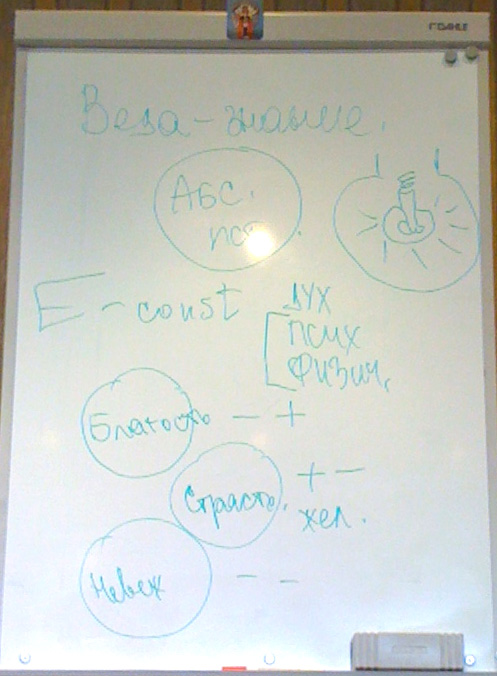 DAHLE
Веда - знание.
АБС.
ист.
E - const
дух
псих
физич.
Благость - +
Страсть. + -
жел.
Невеж - -